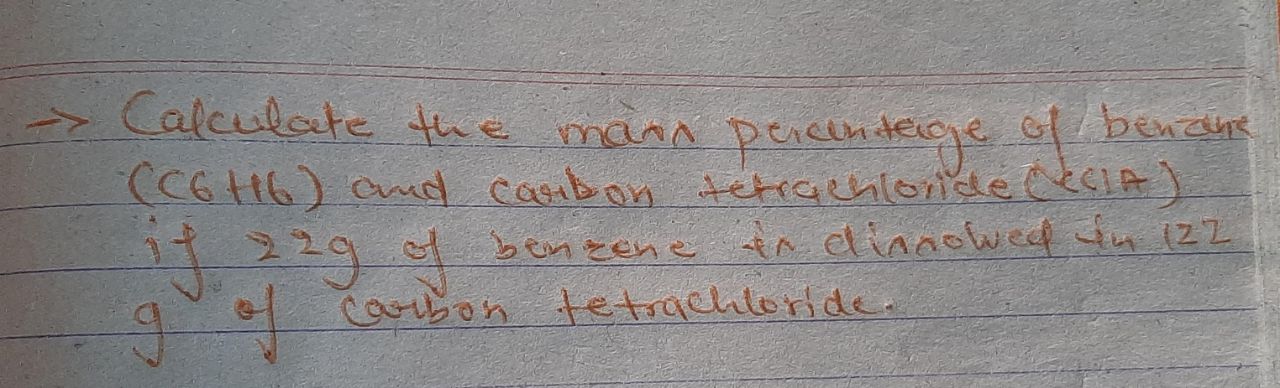 → Calculate the mass percentage of benzene
(C6H6) and carbon tetrachloride (CCl4)
if 22g of benzene is dissolved in 122
g of carbon tetrachloride.